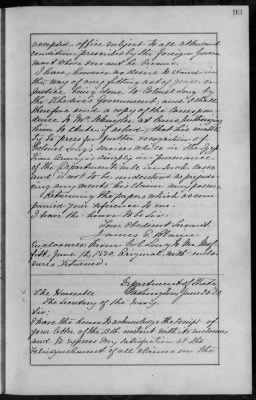 93
accepted office subject to all attendant
conditions prescribed by the foreign Govern-
ment whose servant he became.
I have, however no desire to stand in
the way of any fitting act of grace or
justice being done to Colonel Long by
the Khedive's Government; and I shall
therefore send a copy of the correspon-
dence to Mr. at Cairo, authorizing
him to state, if asked, that his
to press for further recognition of
Colonel Long's services while in the Egyp-
tian Army, is simply in pursuance
of the Department's rule in such cases
and is not to be understood as prejudi-
cing any merits his claim may possess.
Returning the papers which accom-
panied your reference to me.
I have the honor to be Sir,
Your Obedient Servant
James G. Blaine
Enclosures: From Col. Long to Mr.
June 12, 188 Original, with enclo-
sures, returned.
Department of State
Washington, June 20
The Honorable
The Secretary of the Navy.
Sir:
I have the honor to acknowledge the receipt of
your letter of the 18th instant with its enclosures
and to express my satisfaction at the
relinquishment of all claims on the